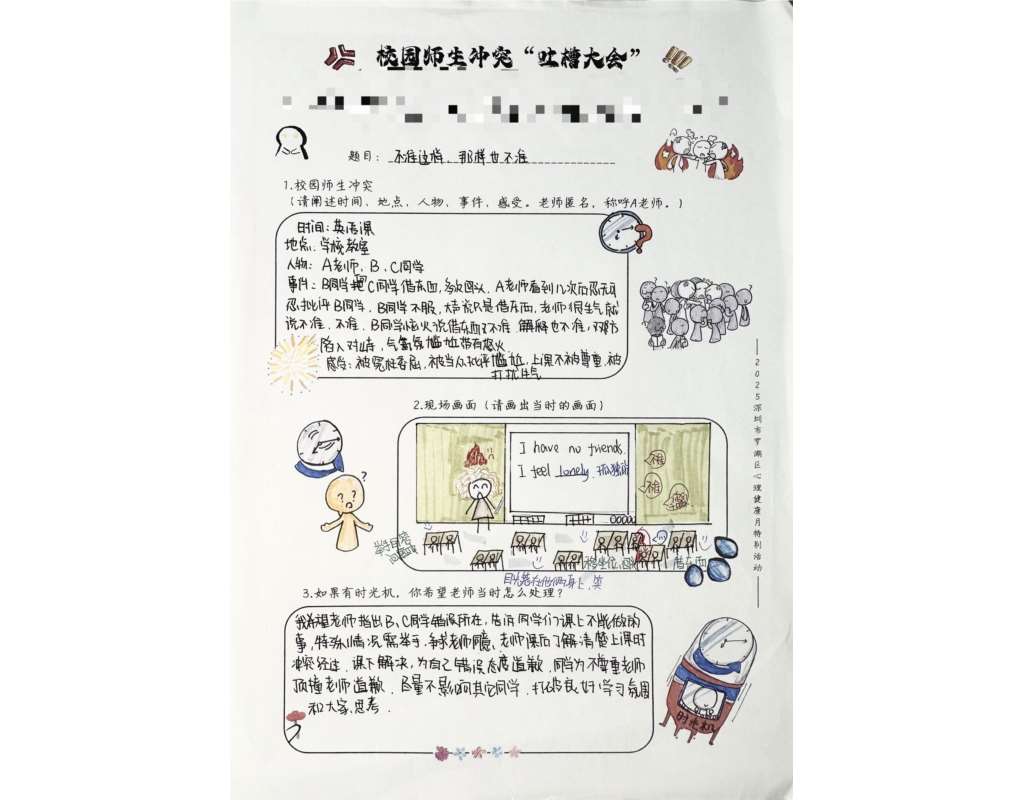 校园师生冲突“吐槽大会”
题目：不准这样，那样也不准
1.校园师生冲突
（请阐述时间、地点、人物、事件、感受。老师匿名，称呼A老师。）
时间：英语课
地点：学校教室
人物：A老师，B、C同学
事件：B同学把C同学借东西，多次回头，A老师看到几次后忍无可
忍批评B同学，B同学不服，大声说只是借东西，老师很生气就
说不准，不准，B同学恼火说借东西不准，解释也不准，双方
陷入对峙，气氛尴尬带有怒火
感受：被冤枉委屈，被当众批评尴尬，上课不被尊重，被
打扰生气
2.现场画面（请画出当时的画面）
I have no friends.
I feel lonely. 孤独的
不准
不准
借东西
目光落在他们身上，笑
3.如果有时光机，你希望老师当时怎么处理？
我希望老师指出B、C同学错误所在，告诉同学们课上不能做的
事，特殊情况需举手，争求老师同意，老师课后了解清楚上课时
冲突经过，课下解决，为自己错误态度道歉，同学为不尊重老师
顶撞老师道歉，尽量不影响其它同学，打破良好学习氛围
和大家思考.
时光机
2025深圳市罗湖区心理健康月特别活动